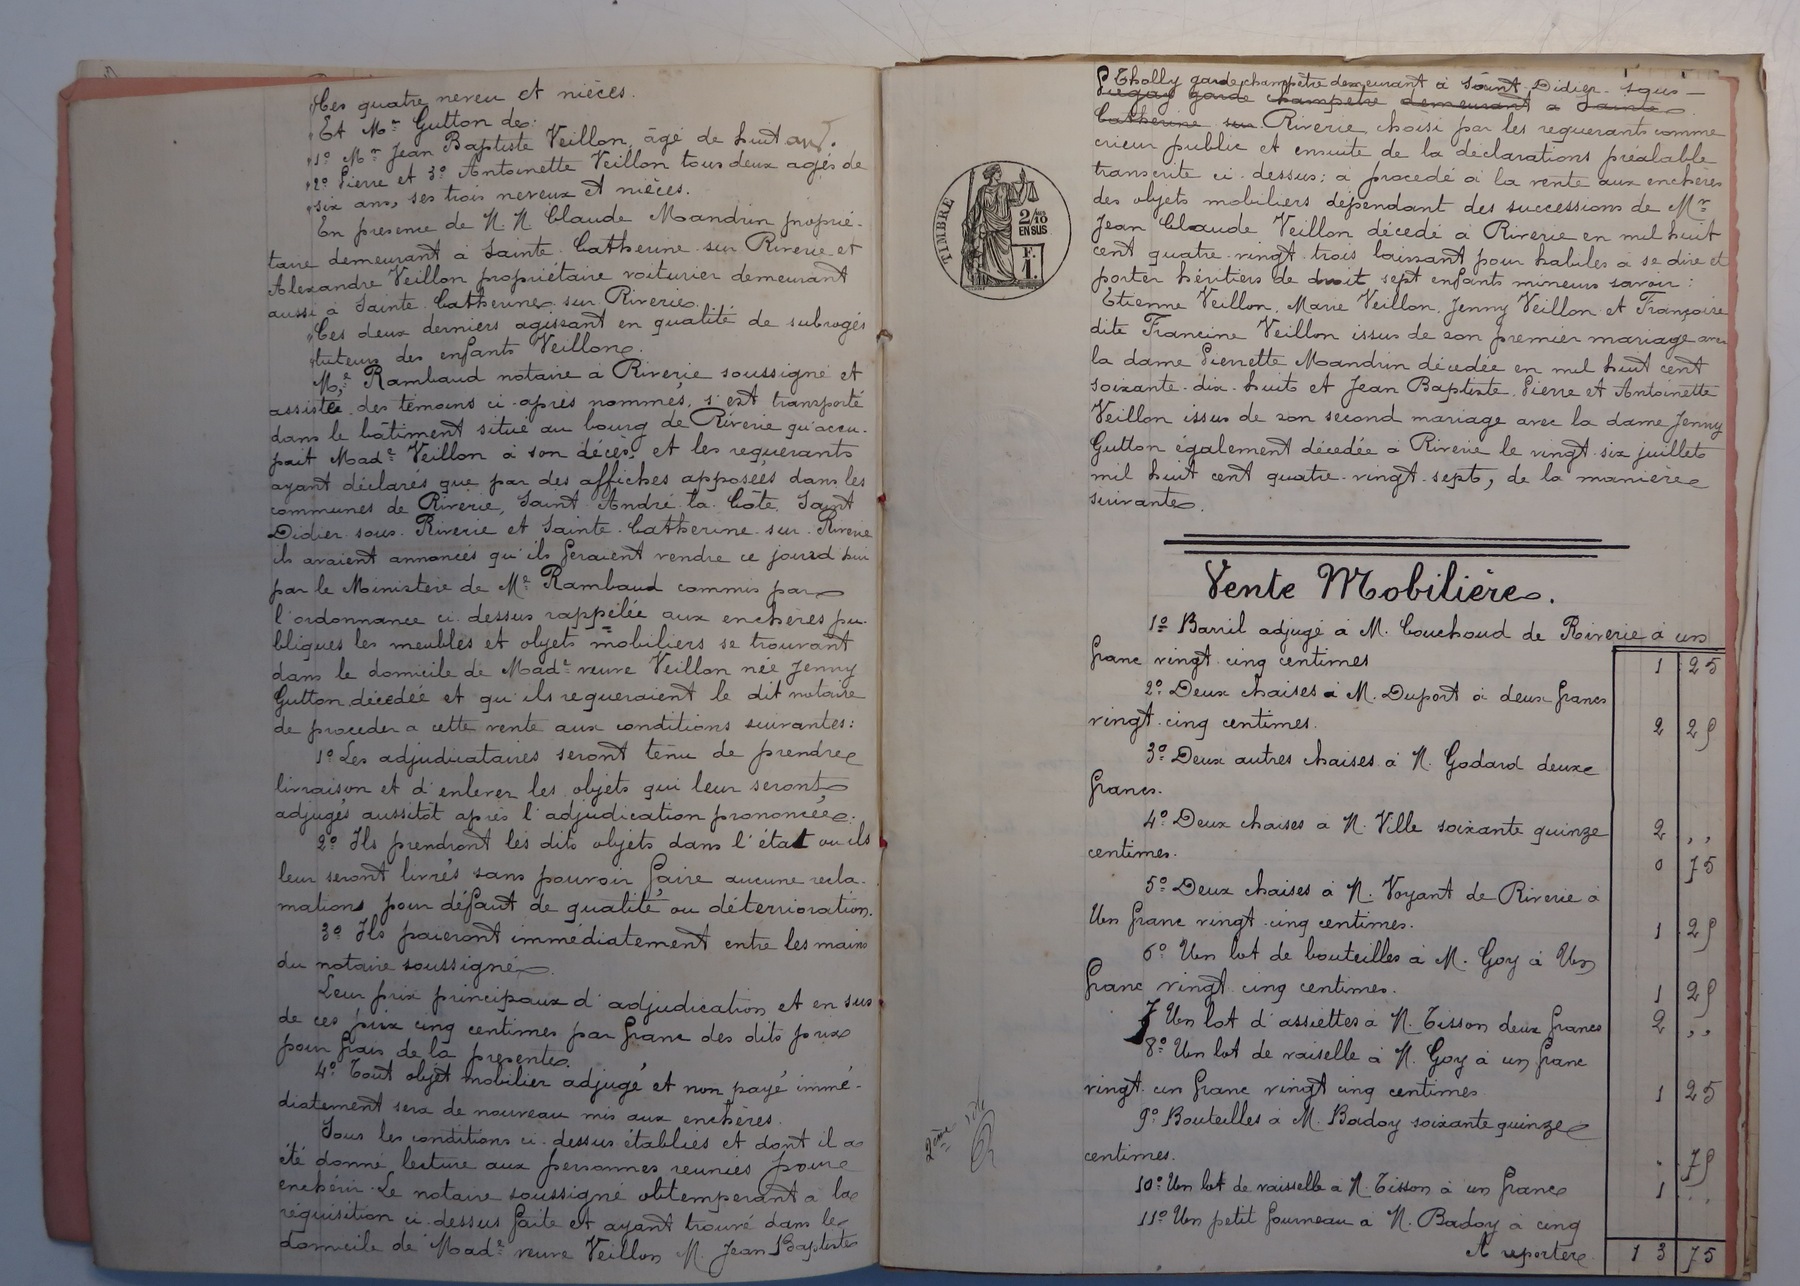 Ces quatre neveu et nièces.
Et Mr Gutton de:
1º Mr Jean Baptiste Veillon, âgé de huit ans.
2º Pierre et 3º Antoinette Veillon tous deux agés de
six ans, ses trois neveux et nièces.
En présence de M. M. Claude Mandrin proprié-
taire demeurant à Sainte-Catherine-sur-Riverie et
Alexandre Veillon propriétaire voiturier demeurant
aussi à Sainte-Catherine-sur-Riverie.
Ces deux derniers agissant en qualité de subrogés
tuteurs des enfants Veillon.
Me Rambaud notaire à Riverie soussigné et
assisté des témoins ci-après nommés, s'est transporté
dans le bâtiment situé au bourg de Riverie qu'occu-
pait Made Veillon à son décès, et les requerants
ayant déclarés que par des affiches apposées dans les
communes de Riverie, Saint-André-la-Côte, Saint
Didier-sous-Riverie et Sainte-Catherine-sur-Riverie
ils avaient annoncés qu'ils feraient vendre ce jourd'hui
par le Ministère de Me Rambaud commis par
l'ordonnance ci-dessus rappélée aux enchères pu-
bliques les meubles et objets mobiliers se trouvant
dans le domicile de Made veuve Veillon née Jenny
Gutton décédée et qu'ils requeraient le dit notaire
de proceder a cette vente aux conditions suivantes:
1º Les adjudicataires seront tenu de prendre
livraison et d'enlever les objets qui leur seront
adjugés aussitôt après l'adjudication prononcée.
2º Ils prendront les dits objets dans l'état ou ils
leur seront livrés sans pouvoir faire aucune récla-
mations pour défaut de qualité ou déterrioration.
3º Ils paieront immédiatement entre les mains
du notaire soussigné.
Leur prix principaux d'adjudication et en sus
de ces prix cinq centimes par franc des dits prix
pour frais de la présente.
4º Tout objet mobilier adjugé et non payé immé-
diatement sera de nouveau mis aux enchères.
Sous les conditions ci-dessus établiés et dont il a
été donné lecture aux personnes reuniés pour
enchérir. Le notaire soussigné obtempérant à la
réquisition ci-dessus faite et ayant trouvé dans le
domicile de Made veuve Veillon M. Jean Baptiste
Tholly garde champêtre demeurant à Saint-Didier-sous-
garde champêtre demeurant a Sainte
Catherine sur Riverie choisi par les requerants comme
crieur public et ensuite de la déclarations préalable
transcrite ci-dessus; a procédé à la vente aux enchères
des objets mobiliers dépendant des successions de Mr
Jean Claude Veillon décédé à Riverie en mil huit
cent quatre-vingt-trois laissant pour habiles à se dire et
porter héritiers de droit sept enfants mineurs savoir:
Étienne Veillon, Marie Veillon, Jenny Veillon et Françoise
dite Francine Veillon issus de son premier mariage avec
la dame Pierrette Mandrin décédée en mil huit cent
soixante-dix-huit et Jean Baptiste Pierre et Antoinette
Veillon issus de son second mariage avec la dame Jenny
Gutton également décédée à Riverie le vingt-six juillet
mil huit cent quatre-vingt-sept, de la manière
suivante.
TIMBRE
2/10
EN SUS
F.
1.
Vente Mobilière.
1º Barril adjugé à M. Couchoud de Riverie à un
franc vingt-cinq centimes 1 25
2º Deux chaises à M. Duport à deux francs
vingt-cinq centimes. 2 25
3º Deux autres chaises à M. Godard deux
francs.
4º Deux chaises à M. Ville soixante quinze 2 ,,
centimes. 0 75
5º Deux chaises à M. Voyant de Riverie à
Un franc vingt-cinq centimes. 1 25
6º Un lot de bouteilles à M. Goy à Un
franc vingt-cinq centimes. 1 25
7 Un lot d'assiettes à M. Tisson deux francs 2 ,,
8º Un lot de vaiselle à M. Goy à un franc
vingt-un franc vingt cinq centimes 1 25
9º Bouteilles à M. Badoy soixante quinze
centimes. . 75
10º Un lot de vaisselle à M. Tisson à un franc 1 ..
11º Un petit fourneau à M. Badoy à cinq
A reporter. 13 75
2ème rôle